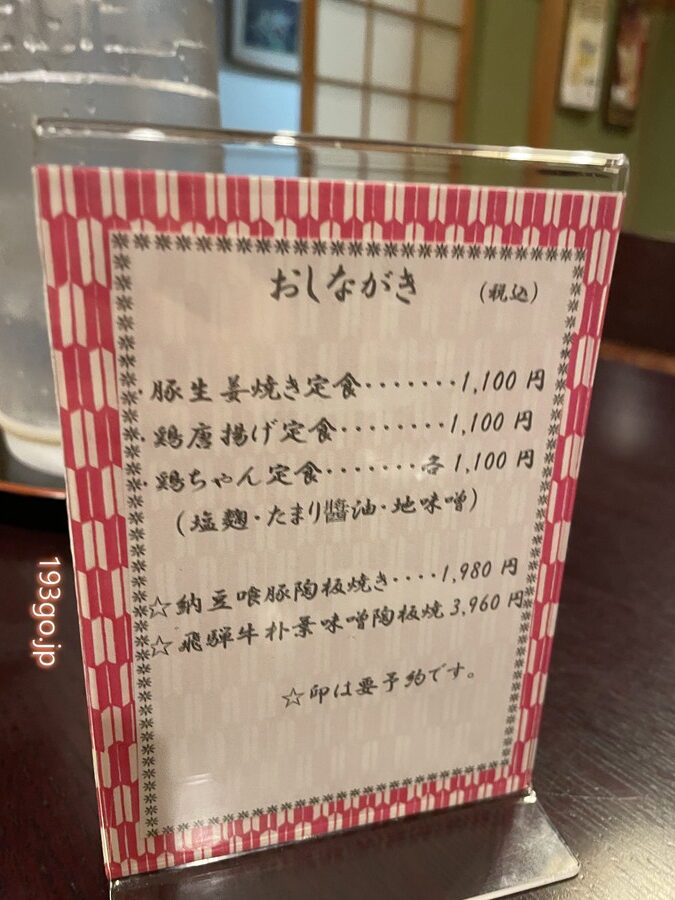 おしながき (税込)
・豚生姜焼き定食・・・・・・・1,100 円
・鶏唐揚げ定食・・・・・・・・1,100 円
・鶏ちゃん定食・・・・・・・各 1,100 円
(塩麹・たまり醬油・地味噌)
☆納豆喰豚陶板焼き・・・・1,980 円
☆飛騨牛朴葉味噌陶板焼 3,960 円
☆印は要予約です。
193go.jp